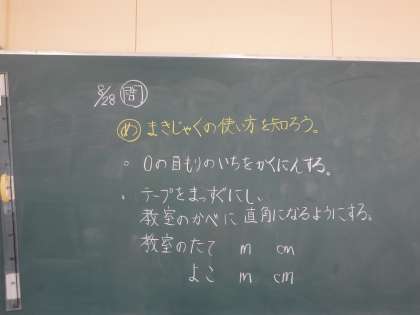 8/28 問
め まきじゃくの使い方を知ろう。
。0の目もりのいちをかくにんする。
・テープをまっすぐにし、
教室のかべに直角になるようにする。
教室のたて m cm
よこ m cm